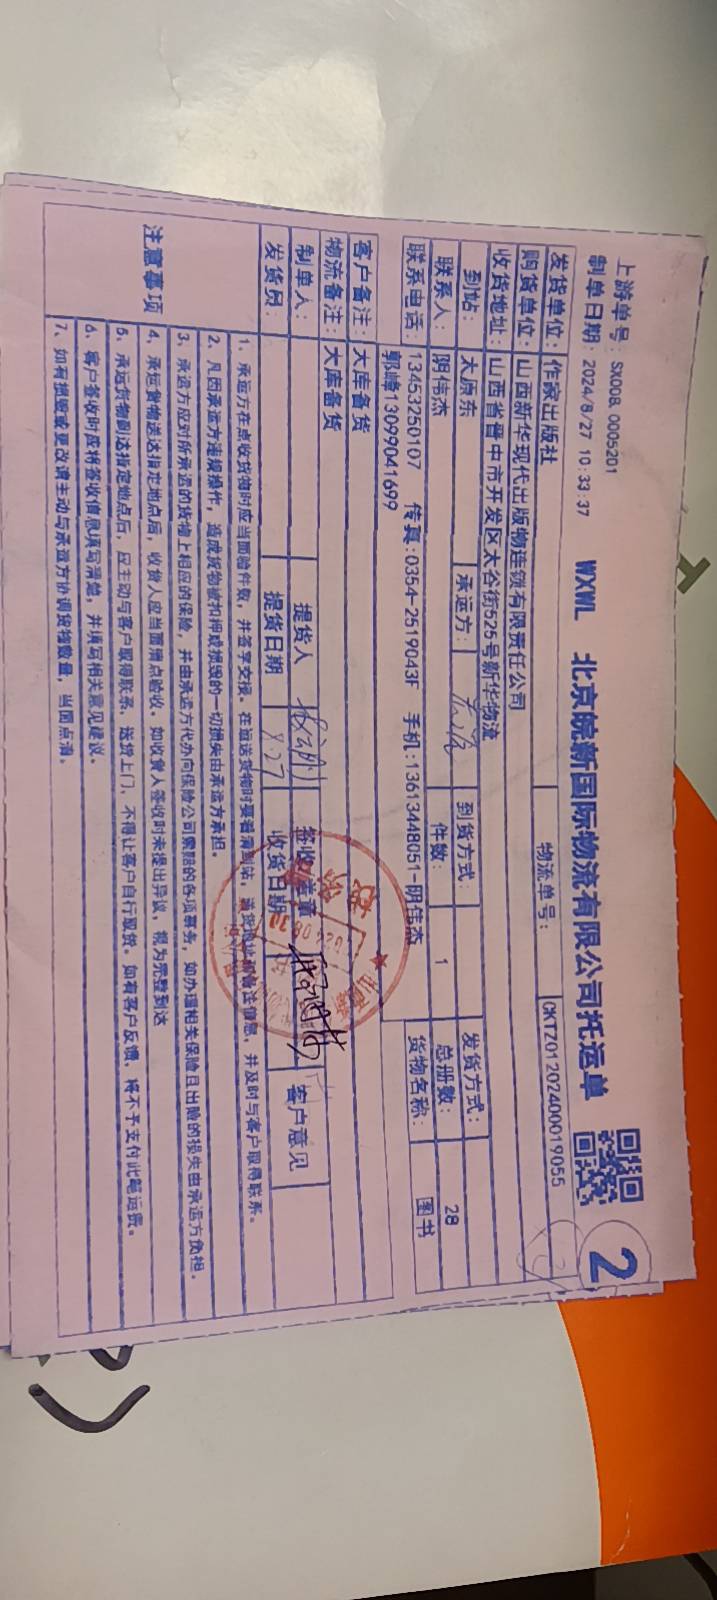 上游单号：SK00B.0005201
制单日期：2024/8/27 10:33:37
WXWL 北京皖新国际物流有限公司托运单
2
发货单位：作家出版社 物流单号：CKTZ01202400019055
购货单位：山西新华现代出版物连锁有限责任公司
收货地址：山西省晋中市开发区太谷街525号新华物流
到站：太原东 承运方： 到货方式： 发货方式：
联系人：阴伟杰 件数：1 总册数：28
联系电话：13453250107 传真：0354-2519043F 手机：13613448051-阴伟杰 货物名称：图书
郭峰13099041699
客户备注：大库备货
物流备注：大库备货
制单人： 提货人 签收 盖章 客户意见
发货员： 提货日期 8.27 收货日期
注意事项
1、承运方在点收货物时应当面验件数，并签字交接。在运送货物时要看清到站，
并及时与客户取得联系。
2、凡因承运方违规操作，造成货物被扣押或损毁的一切损失由承运方承担。
3、承运方应对所承运的货物上相应的保险，并由承运方代办向保险公司索赔的各项事务，如办理相关保险且出险的损失由承运方负担。
4、承运货物送达指定地点后，收货人应当面清点验收。如收货人签收时未提出异议，视为完整到达
5、承运货物到达指定地点后，应主动与客户取得联系，送货上门，不得让客户自行取货。如有客户反馈，将不予支付此笔运费。
6、客户签收时应将签收信息填写清楚，并填写相关意见建议。
7、如有损毁或更改请主动与承运方协调货物数量，当面点清。